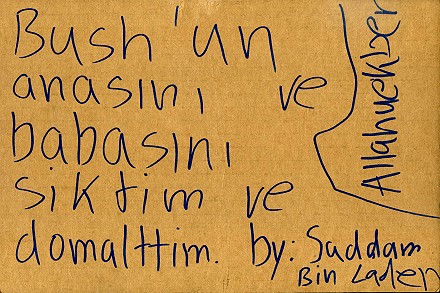 Bush'un
anasını ve
babasını
siktim ve
domalttim. by: Saddam
Bin Laden
Allahuekber